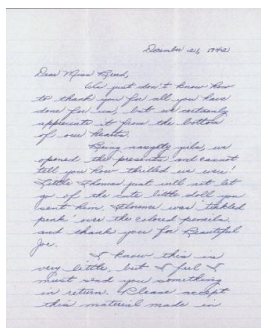 December 21, 1942
Dear Miss Breed,
We just don't know how
to thank you for all you have
done for us, but we certainly
appreciate it from the bottom
of our hearts.
Being naughty girls, we
opened the presents and cannot
tell you how thrilled we were!
Little Thomas just will not let
go of the cute little doll you
sent him. Florence was "tickled
pink" over the colored pencils,
and thank you for Beautiful
Joe.
I know this is
very little, but I feel I
must send you something
in return. Please accept
this material made in